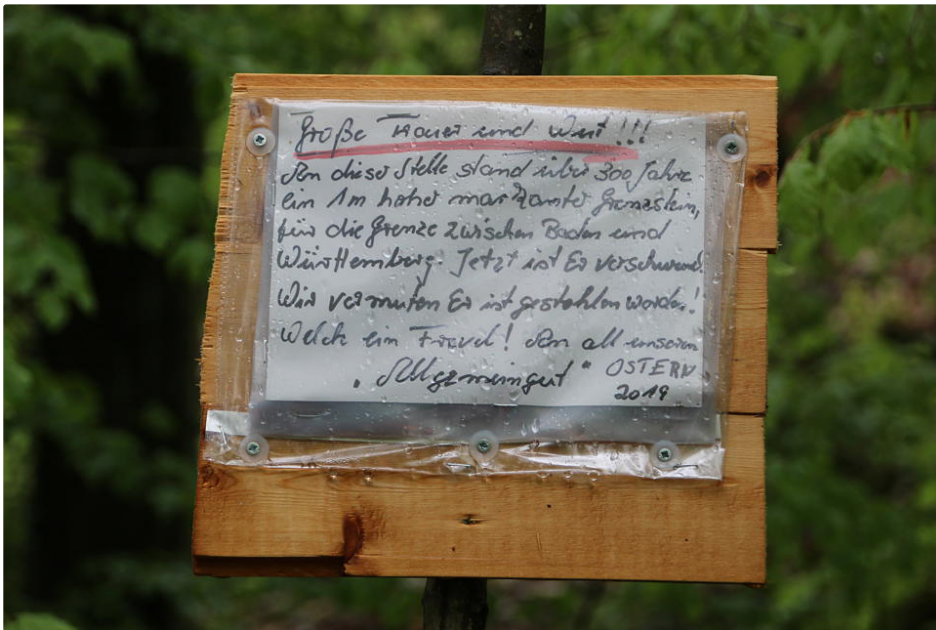 Große Trauer und Wut!!!
An dieser Stelle stand über 300 Jahre
ein 1m hoher markanter Grenzstein,
für die Grenze zwischen Baden und
Württemberg. Jetzt ist Er verschwund.
Wir vermuten Er ist gestohlen worden!
Welch ein Frevel! An all unseren
„Allgemeingut“ OSTERN
2019